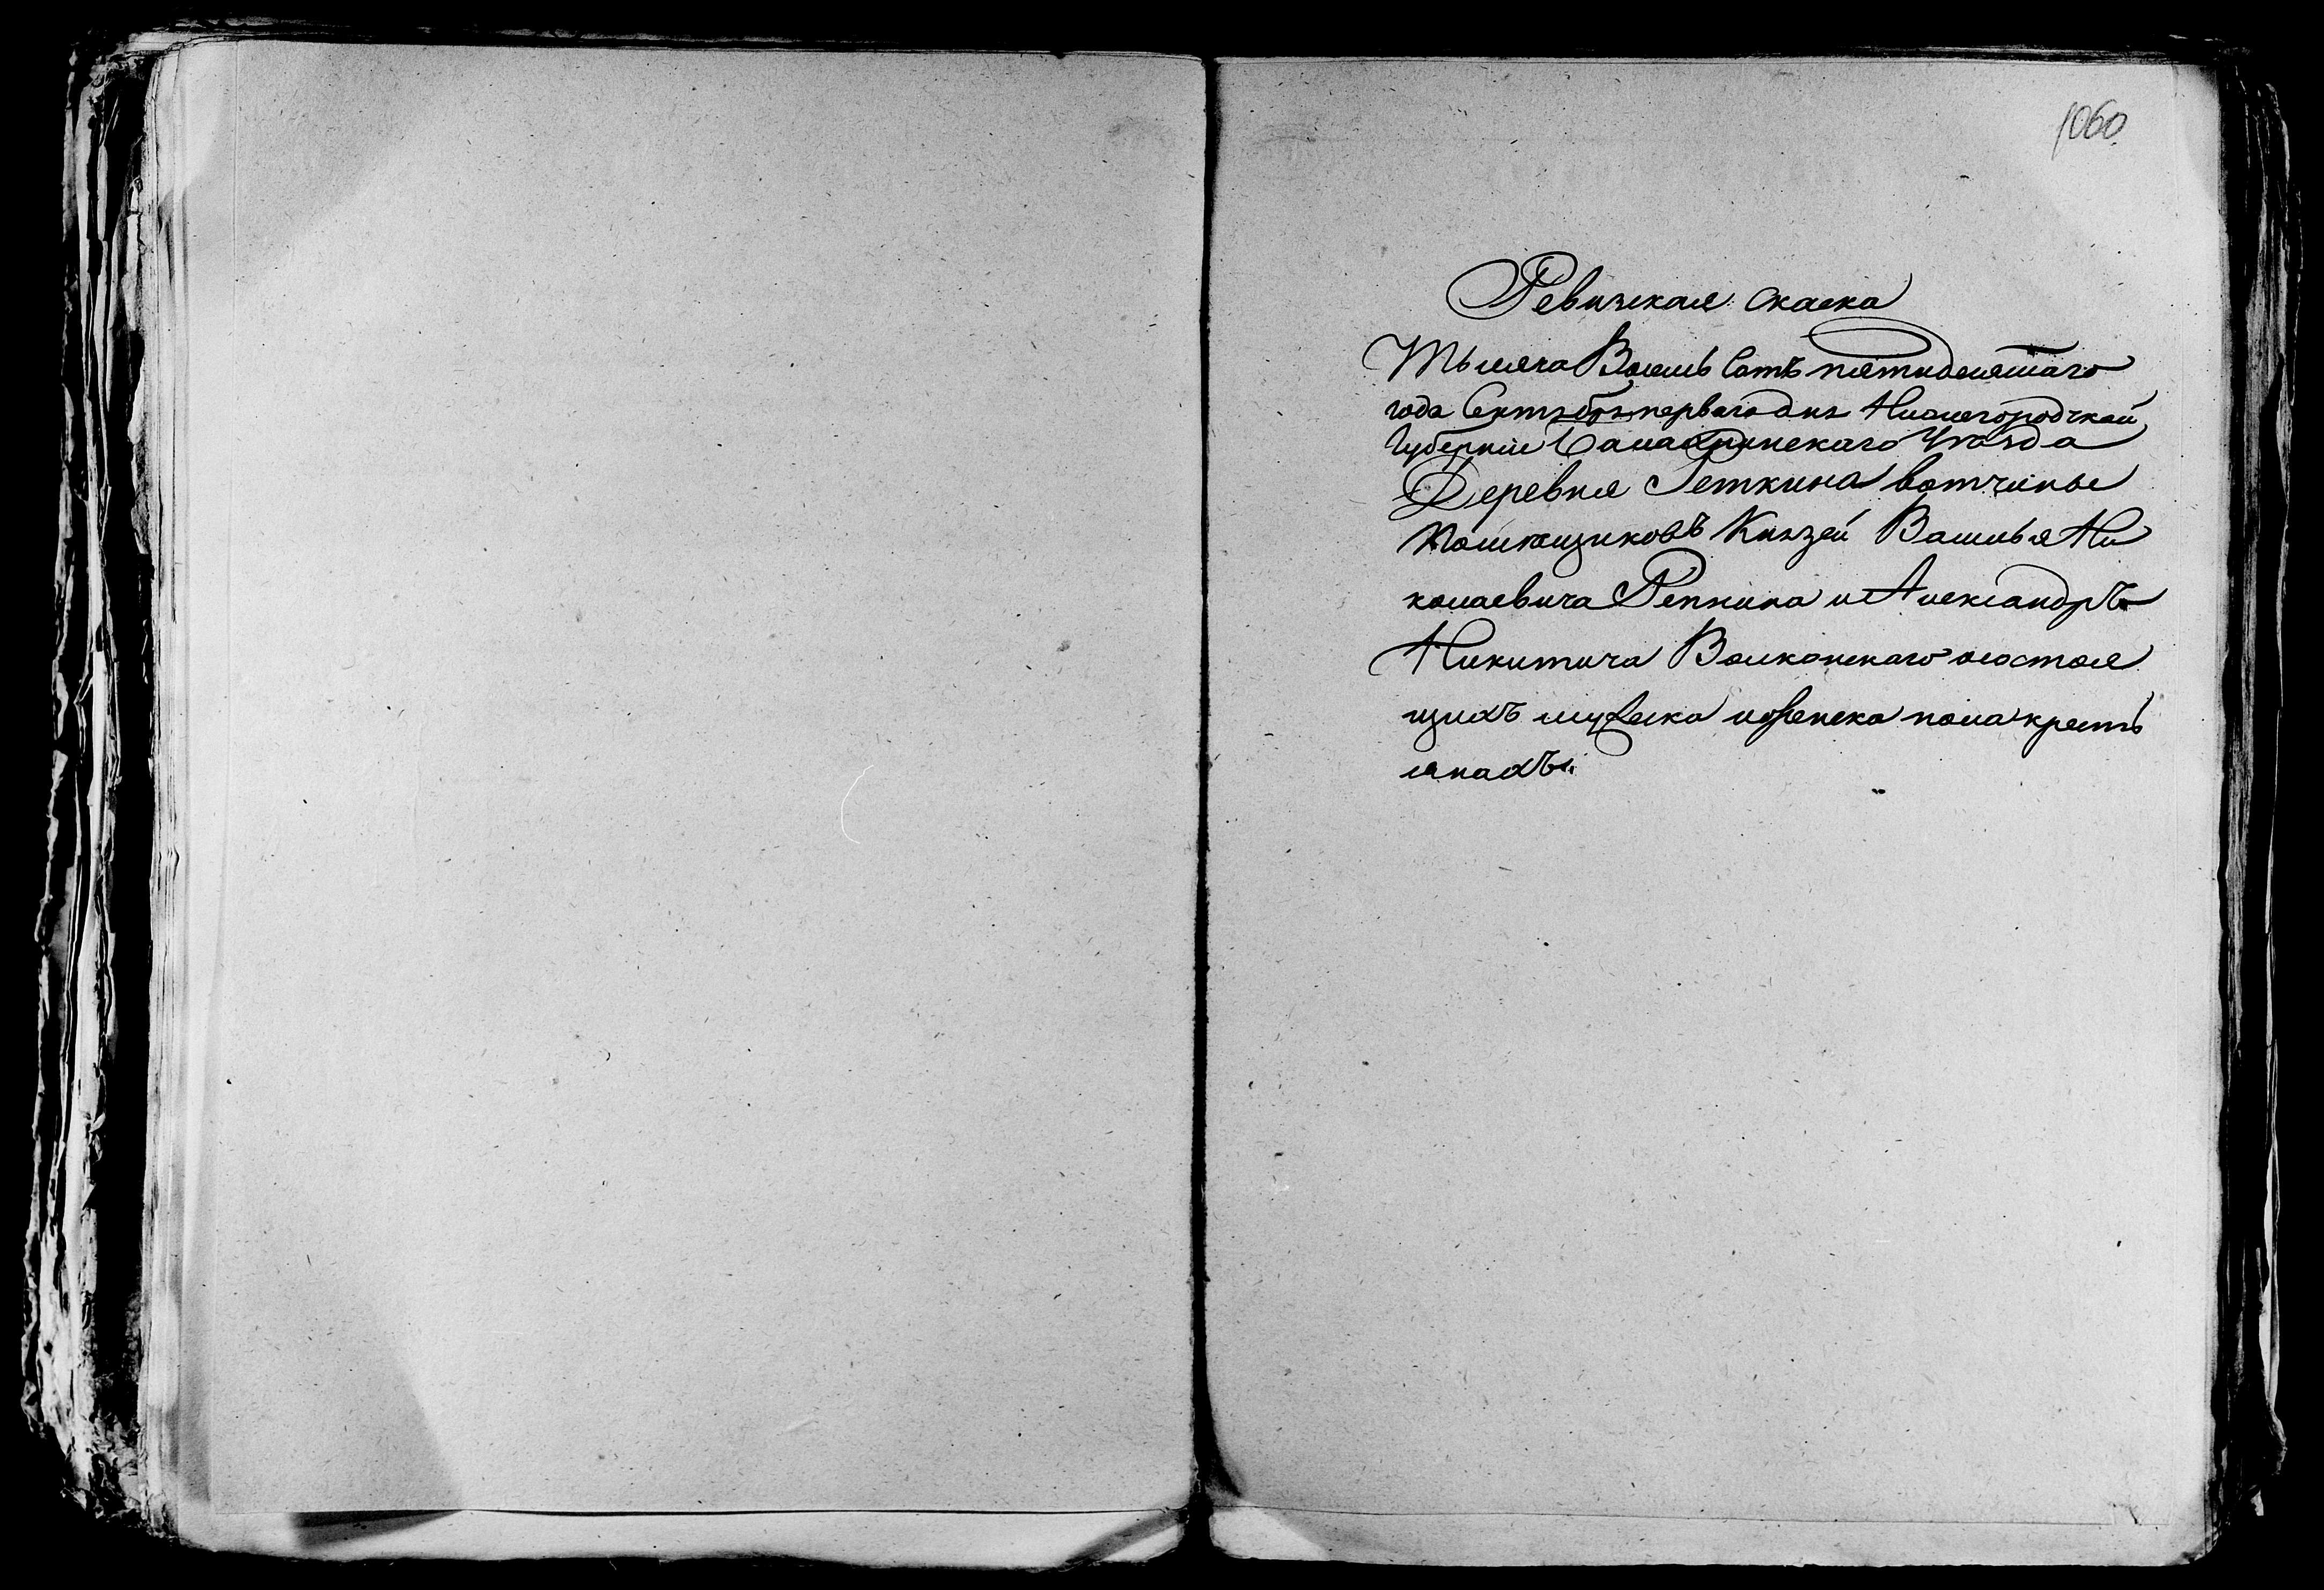 1060
Ревизская скаска
Тысяча Восемь Сотъ пятидесятаго
года Сентября перваго дня Нижегородской
Губерніи Балахнинскаго Уѣзда
Деревня Реткина вотчины
Помѣщиковъ Князей Василья Ни
колаевича Репнина и Александръ
Никитича Волконскаго осостоя
щихъ мужеска иженска пола кресть
янахъ.